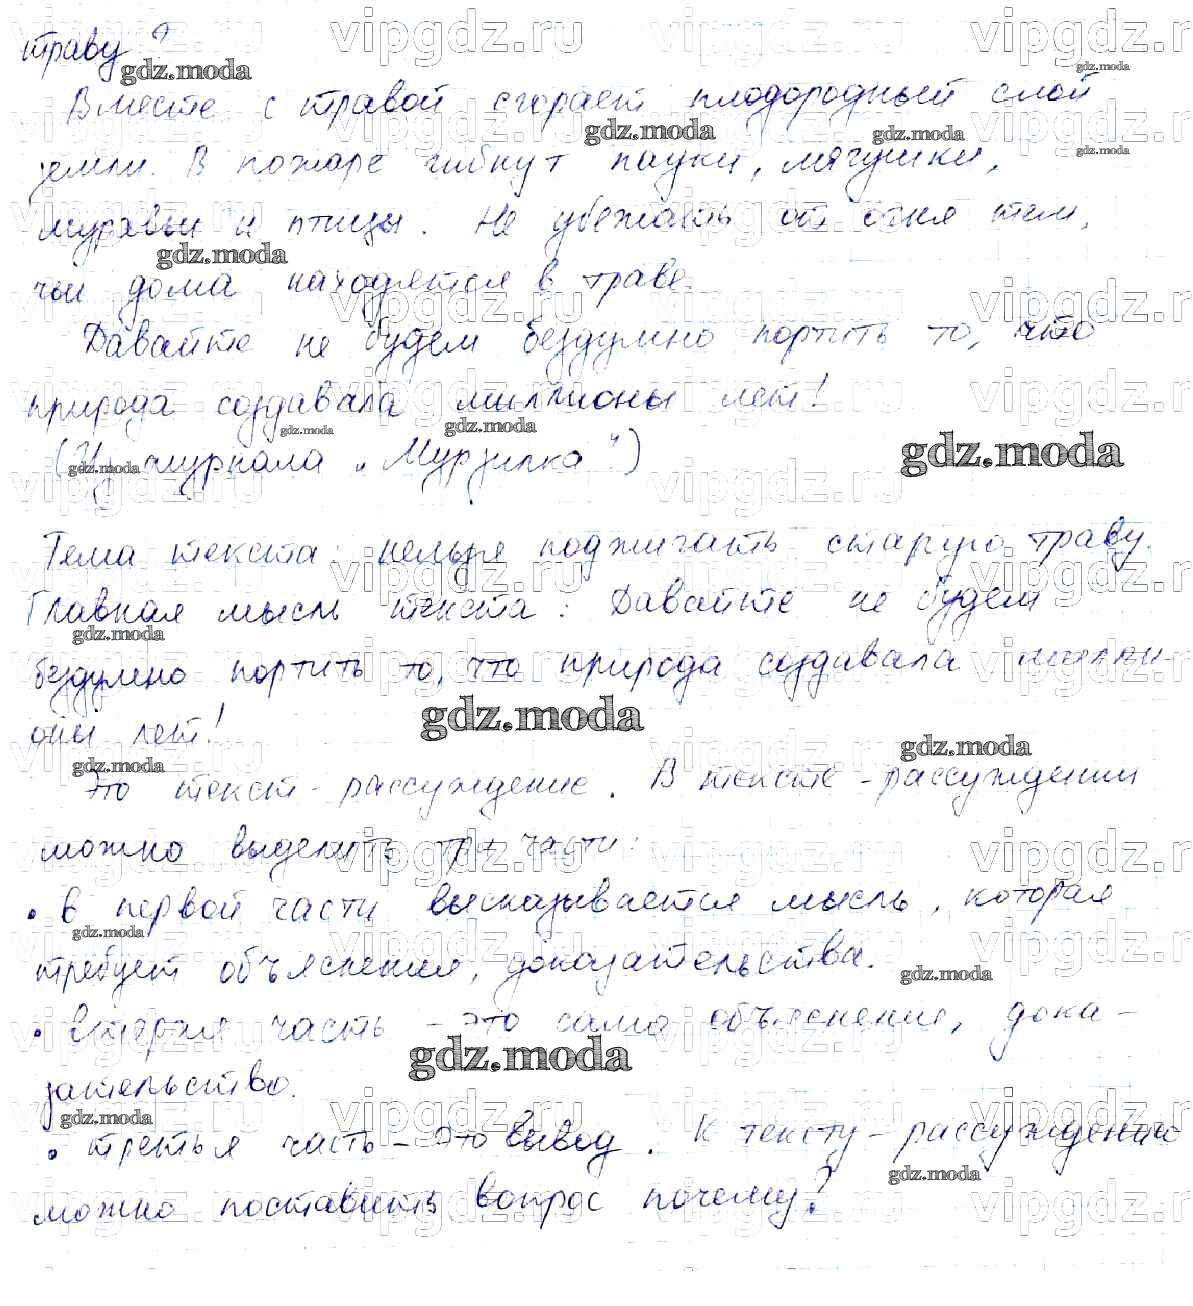 траву?
Вместе с травой сгорает плодородный слой
земли. В пожаре гибнут пауки, лягушки,
муравьи и птицы. Не убежать от огня тем,
чьи дома находятся в траве.
Давайте не будем бездумно портить то, что
природа создавала миллионы лет!
(Из журнала „Мурзилка")
Тема текста: нельзя поджигать старую траву.
Главная мысль текста: Давайте не будем
бездумно портить то, что природа создавала милли-
оны лет!
Это текст-рассуждение. В тексте-рассуждении
можно выделить три части:
• в первой части высказывается мысль, которая
требует объяснения, доказательства.
• вторая часть – это само объяснение, дока-
зательство.
• третья часть – это вывод. К тексту-рассуждению
можно поставить вопрос почему?
gdz.moda
vipgdz.ru